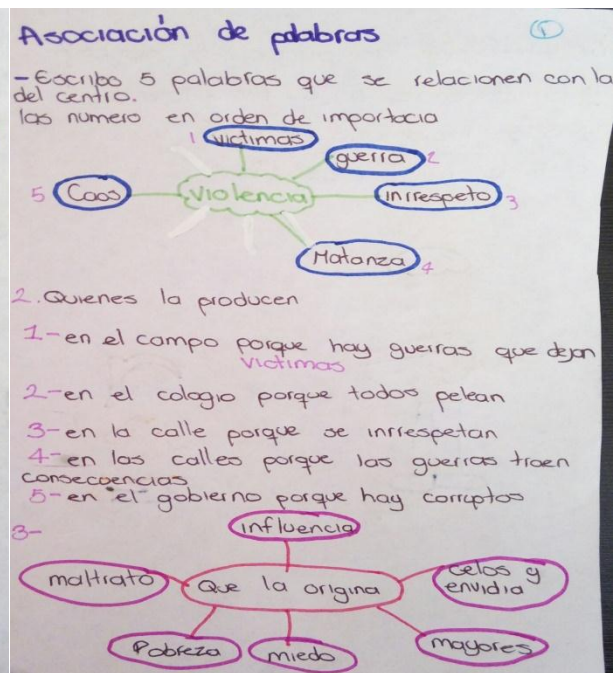 Asociación de palabras 1
- Escribo 5 palabras que se relacionen con la
del centro.
las numero en orden de importacia
1 victimas
guerra 2
5 Caos violencia inrrespeto 3
Matanza 4
2. Quienes la producen
1- en el campo porque hay guerras que dejan
victimas
2- en el colagio porque todos pelean
3- en la calle porque se inrrespetan
4- en las calles porque las guerras traen
consecuencias
5- en el gobierno porque hay corruptos
3-
influencia
maltrato Que la origina celos y
envidia
Pobreza miedo mayores